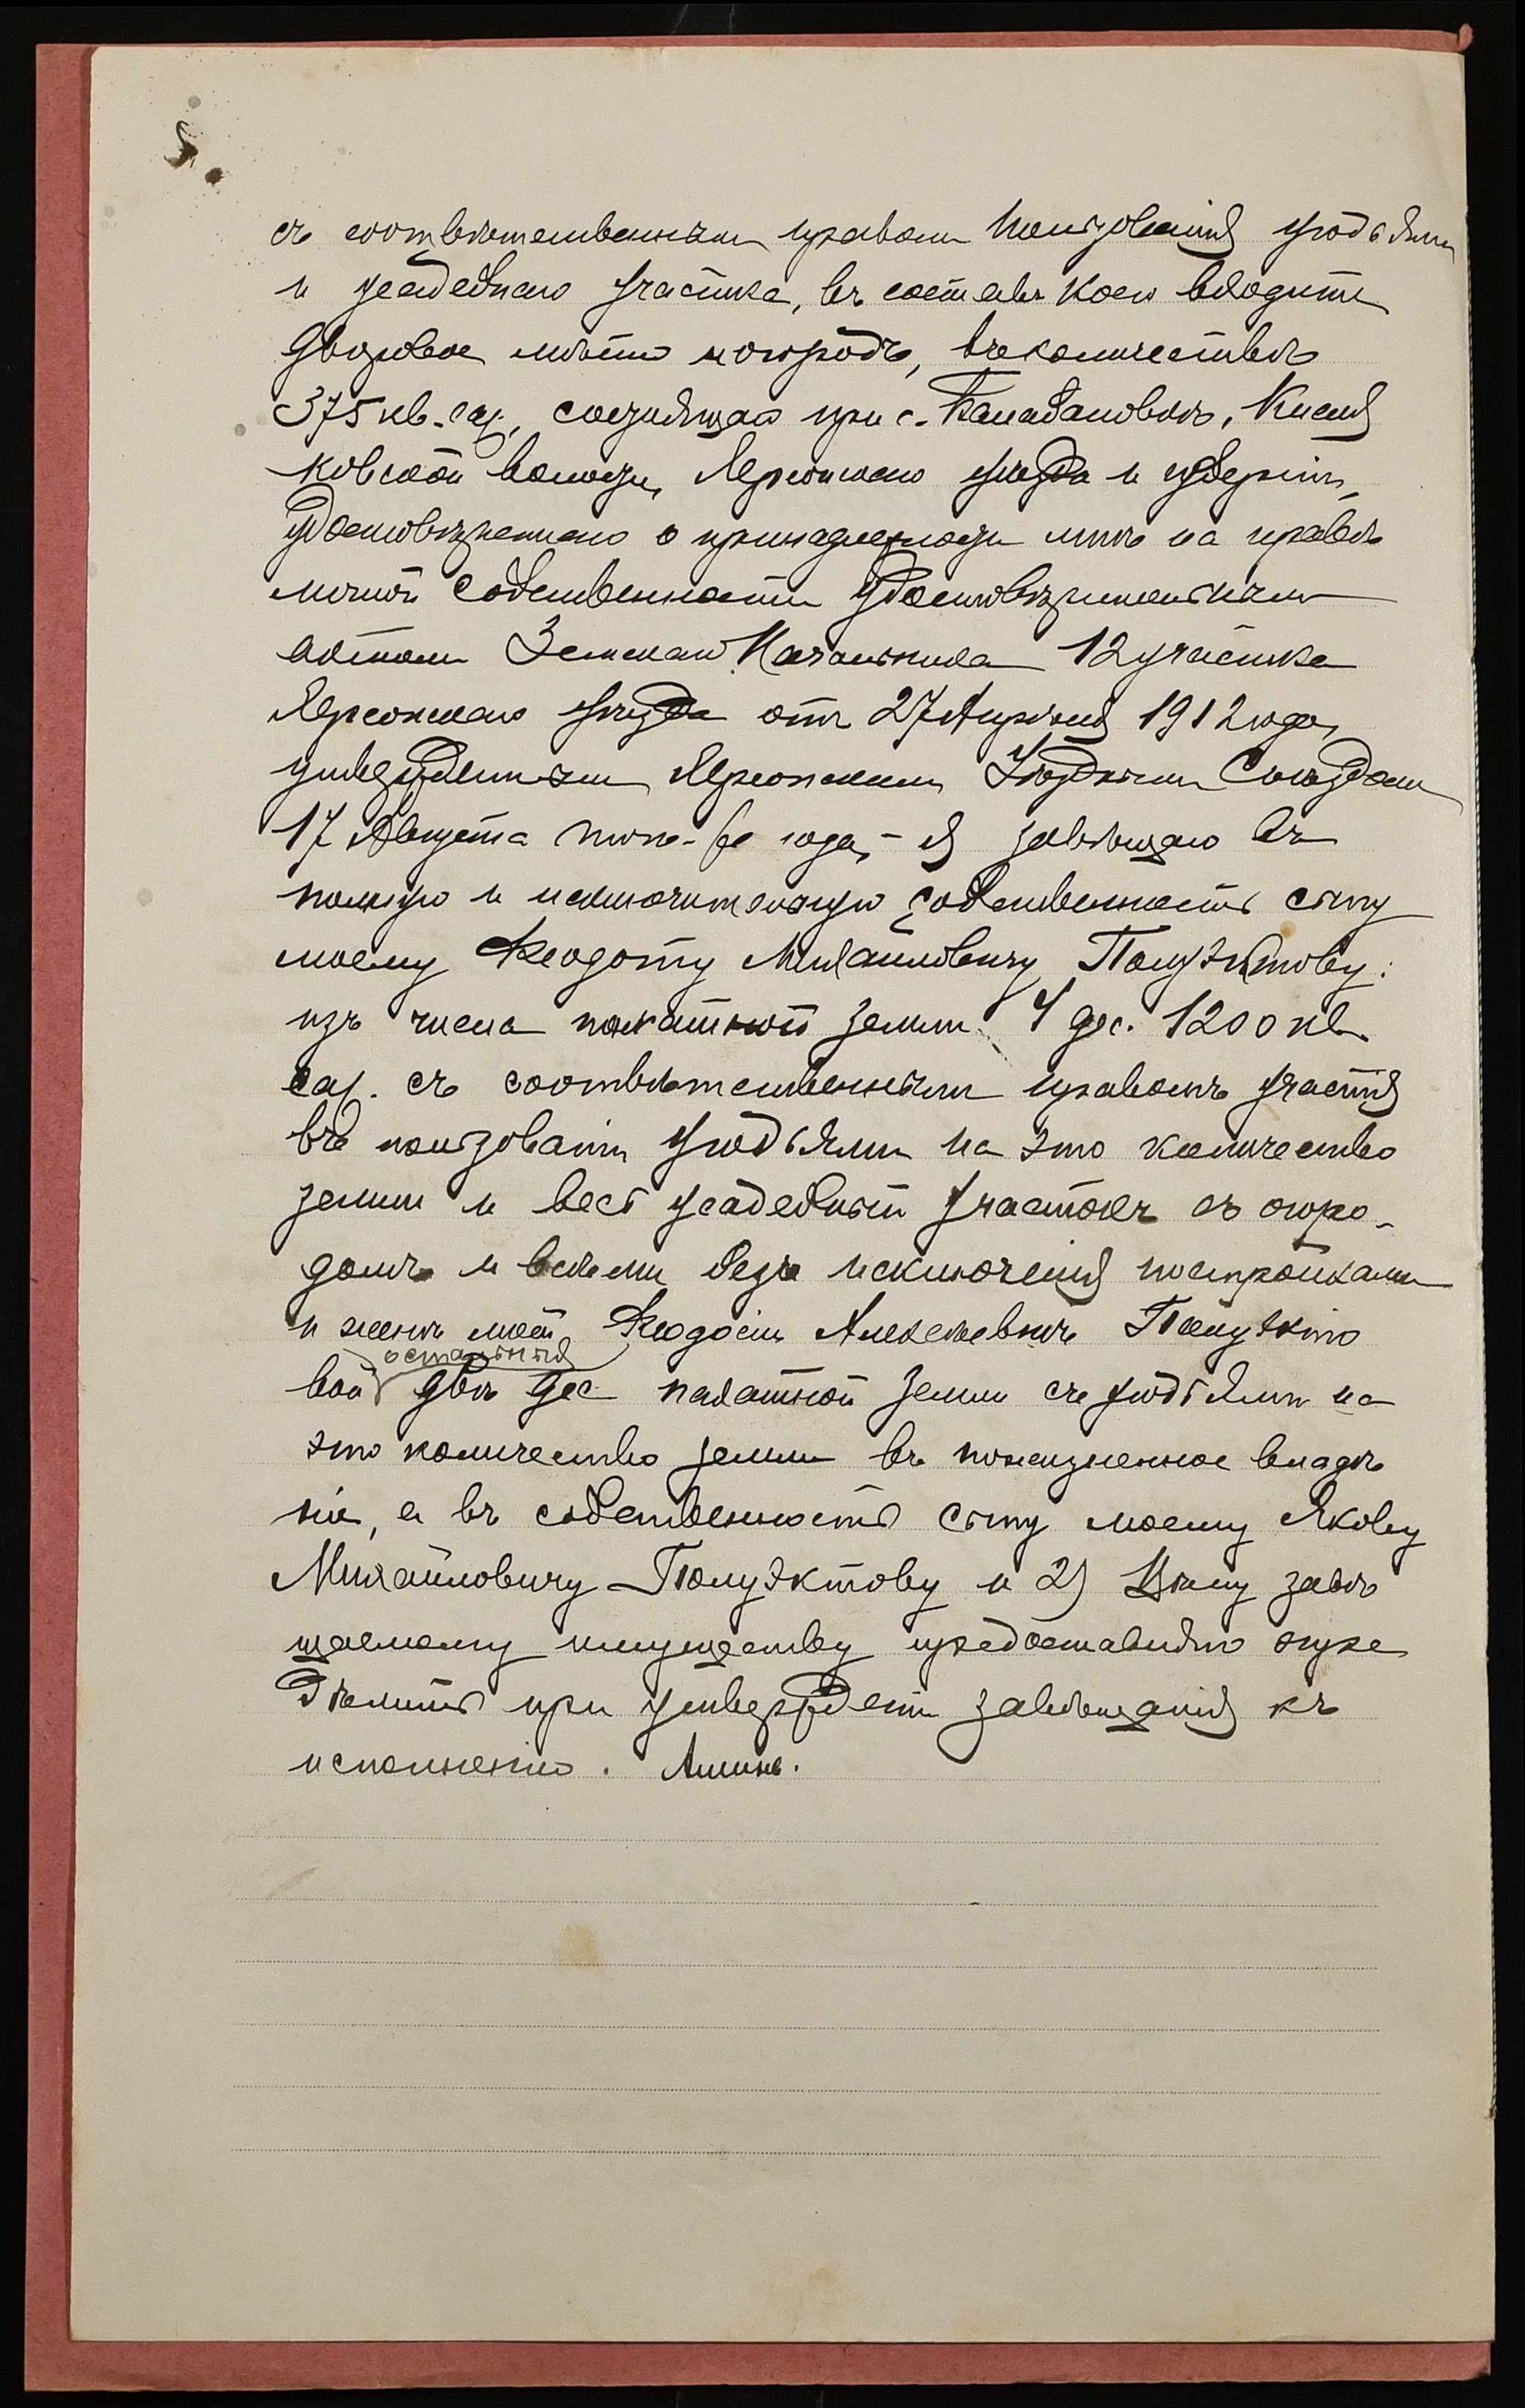 съ соотвѣтственнымъ правомъ пользованія угодьями
и усадебнаго участка, въ составъ коего входитъ
дворовое мѣсто и огородъ, въ количествѣ
375 кв. саж., состоящаго при с. Балабановкѣ, Кисля
ковской волости, Херсонскаго уѣзда и губерніи,
удостовѣреннаго о принадлежности мнѣ на правѣ
личной собственности удостовѣрительнымъ
актомъ Земскаго Начальника 12 участка
Херсонскаго уѣзда отъ 27 Апрѣля 1912 года,
утвержденнымъ Херсонскимъ Уѣзднымъ Съѣздомъ
17 Августа того-же года, - я завѣщаю въ
полную и исключительную собственность сыну
моему Феодоту Михайловичу Полуэктову:
изъ числа пахатной земли 4 дес. 1200 кв.
саж. съ соотвѣтственнымъ правомъ участія
въ пользованіи угодьями на это количество
земли и весь усадебный участокъ съ огоро-
домъ и всѣми безъ исключенія постройками
и женѣ моей Феодосіи Алексѣевнѣ Полуэкто
остальныя
вой двѣ дес. пахатной земли съ угодьями на
это количество земли въ пожизненное владѣ
ніе, а въ собственность сыну моему Якову
Михайловичу Полуэктову и 2) Цѣну завѣ
щаемому имуществу предоставляю опре
дѣлить при утвержденіи завѣщанія къ
исполненію. Аминь.